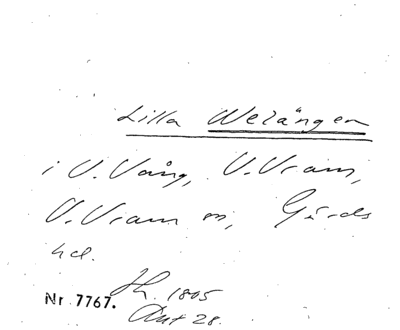 Lilla Welängen
i V. Vång, V. Vram,
V. Vram sn, Gärds
hd.
Nr 7767. Jh. 1805
Ant 28.